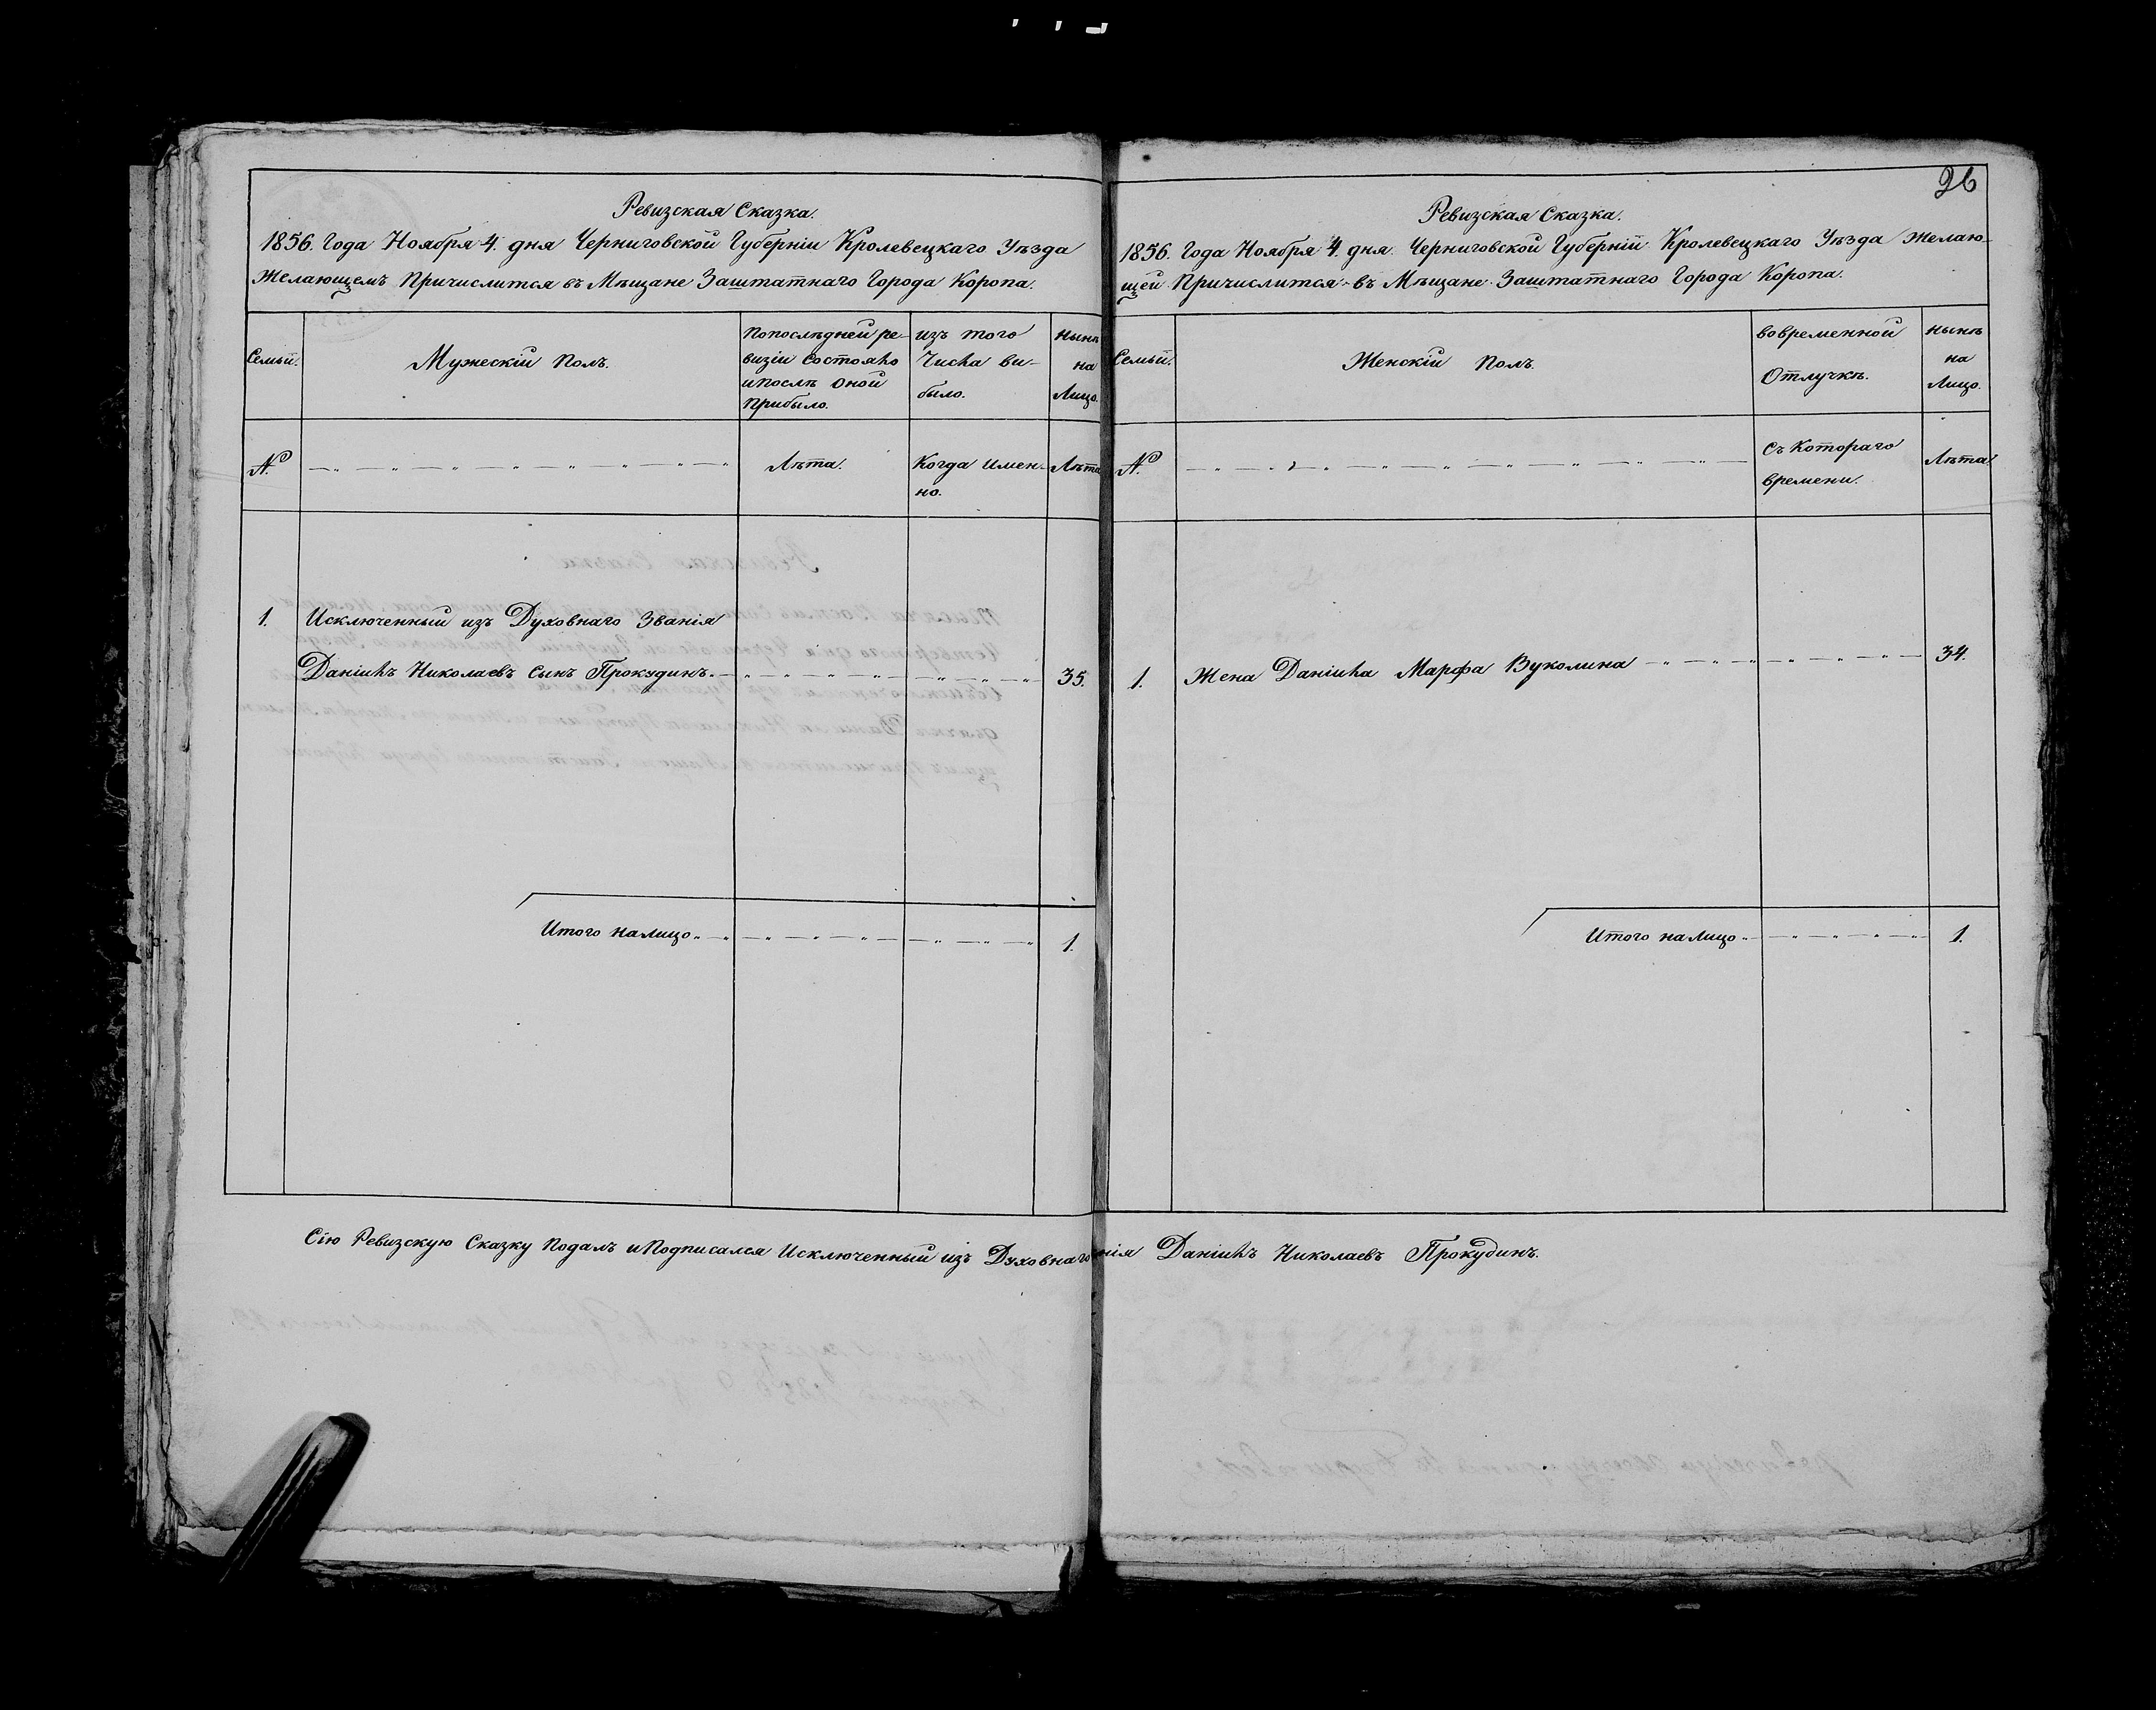 26
Ревизская Сказка.
1856. Года Ноября 4. дня Черниговской Губерніи Кролевецкаго Уѣзда
Желающемъ Причислится въ Мѣщане Заштатнаго Города Коропа.
Семьи.
Мужескій Полъ.
Попослѣдней ре-
визіи Состояло
и послѣ Оной
Прибыло.
изъ того
Числа ви-
было.
нынѣ
на
Лицо.
№
Лѣта.
Когда Имен-
но.
Лѣта
1. Исключенный изъ Духовнаго Званія
Даніилъ Николаевъ Сынъ Прокудинъ. 35.
Итого налицо 1.
Ревизская Сказка.
1856. Года Ноября 4. дня. Черниговской Губерній Кролевецкаго Уѣзда Желаю-
щей Причислится въ Мѣщане Заштатнаго Города Коропа.
Семьи.
Женскій Полъ.
вовременной
Отлучкѣ.
нынѣ
на
Лицо.
№
Съ Котораго
времени.
Лѣта.
1. Жена Даніила Марфа Вуколина 34.
Итого налицо 1.
Сію Ревизскую Сказку Подалъ и Подписался Исключенный изъ Духовнаго нія Даніилъ Николаевъ Прокудинъ.